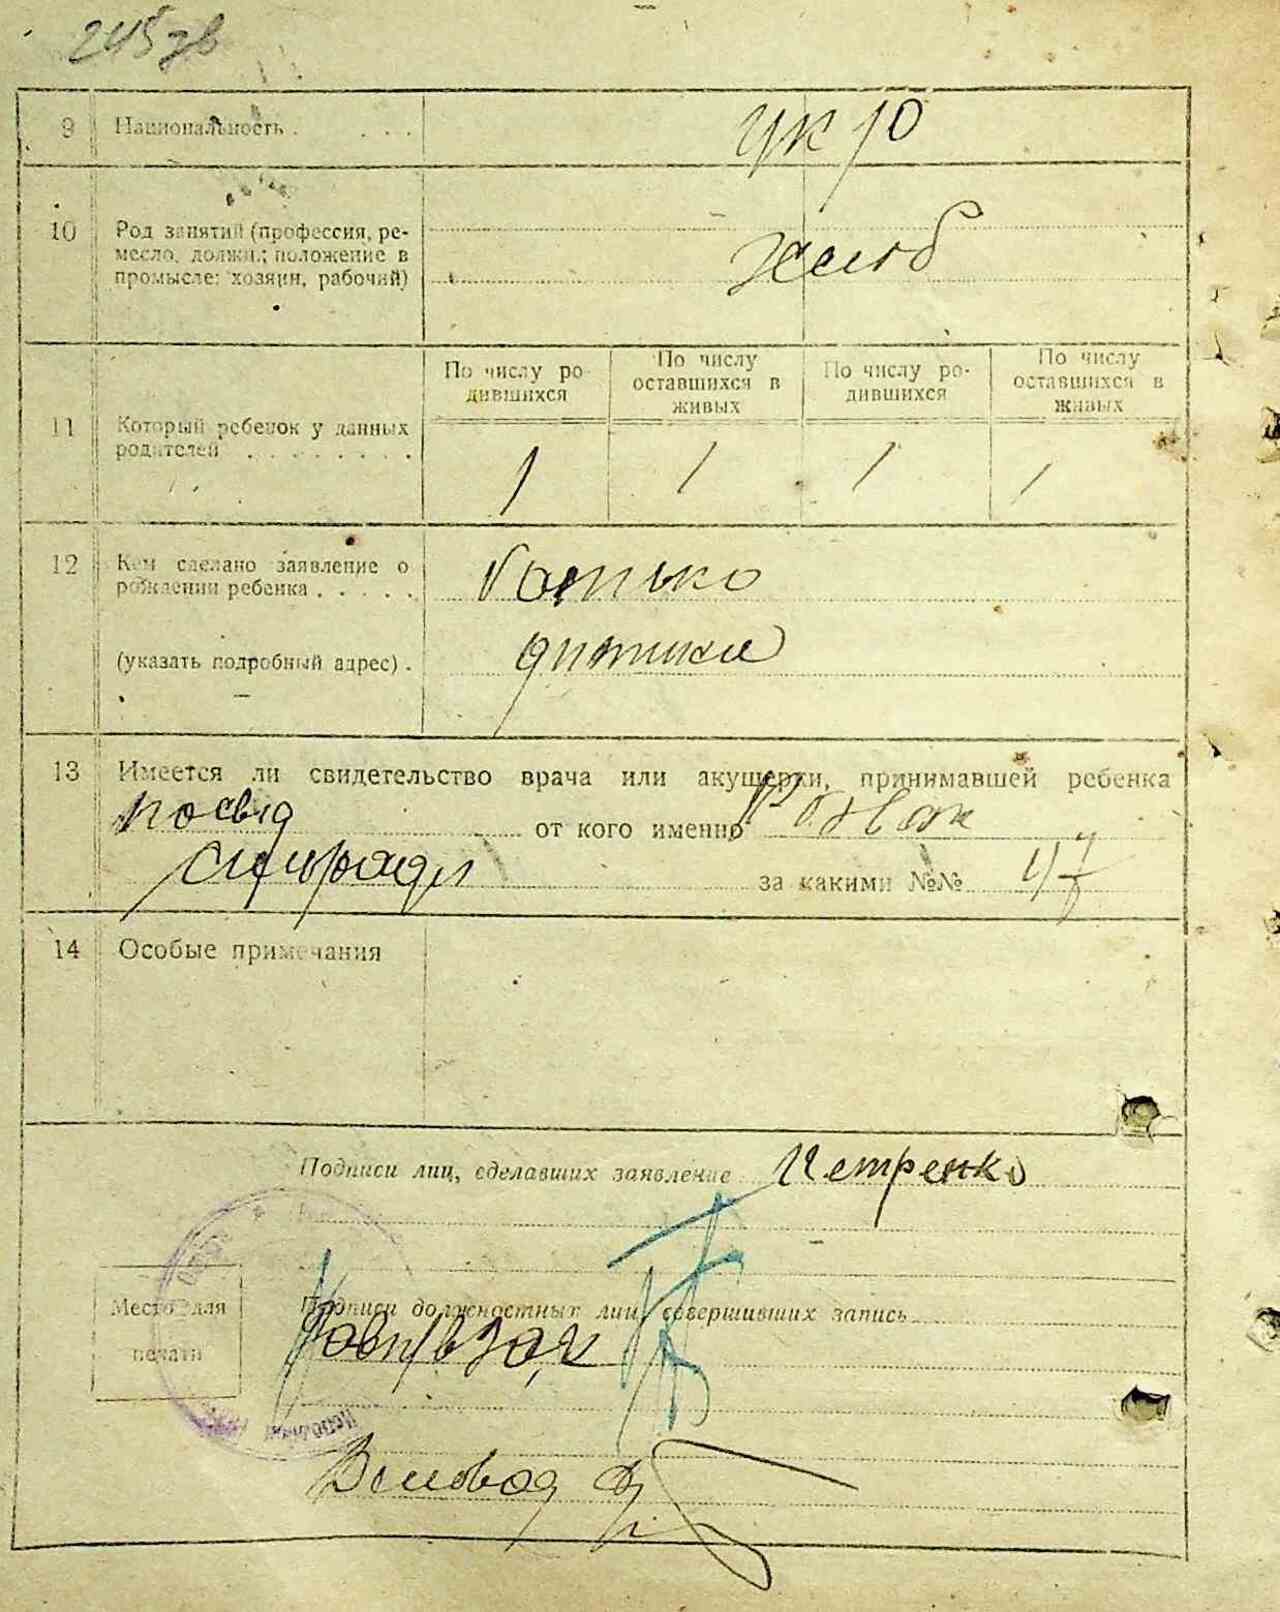 245 зв
9 Национальность . . . . укр
10 Род занятий (профессия, ре-
месло, должн.; положение в
промысле: хозяин, рабочий)
хлеб
По числу ро-
дившихся
По числу
оставшихся в
живых
По числу ро-
дившихся
По числу
оставшихся в
живых
11 Который ребенок у данных
родителей . . . . . . . .
1 1 1 1
12 Кем сделано заявление о
рождении ребенка . . . . . батько
(указать подробный адрес) . дитини
13 Имеется ли свидетельство врача или акушерки, принимавшей ребенка
посвід от кого именно
сільради за какими №№ 47
14 Особые примечания
Подписи лиц, сделавших заявление Петренко
Место для
печати
Подписи должностных лиц, совершивших запись
Діловод